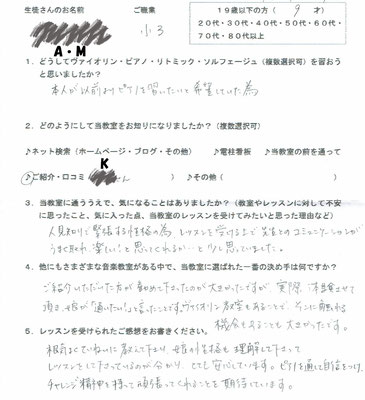 生徒さんのお名前 ご職業 19歳以下の方（ 9 才）
A・M 小3 20代・30代・40代・50代・60代・
70代・80代以上
1．どうしてヴァイオリン・ピアノ・リトミック・ソルフェージュ（複数選択可）を習おう
と思いましたか？
本人が以前よりピアノを習いたいと希望していた為
2．どのようにして当教室をお知りになりましたか？（複数選択可）
♪ネット検索（ホームページ・ブログ・その他） ♪電柱看板 ♪当教室の前を通って
♪ご紹介・口コミ（ K さん ） ♪その他（ ）
3．当教室に通ううえで、気になることはありましたか？（教室やレッスンに対して不安
に思ったこと、気に入った点、当教室のレッスンを受けてみたいと思った理由など）
人見知りで緊張する性格の為、レッスンを受ける上で先生とのコミュニケーションが
うまく取れ、楽しい！と思ってくれるか…と少し思っていました。
4．他にもさまざまな音楽教室がある中で、当教室に選ばれた一番の決め手は何ですか？
ご紹介いただいた方が勧めて下さったのが大きかったですが、実際、体験させて
頂き、娘が「通いたい！」と言ったことです。ヴァイオリン教室もあることで、そこに触れる
機会もえることも大きかったです。
5．レッスンを受けられたご感想をお書きください。
根気よくていねいに教えて下さり、娘の性格も理解して下さって
レッスンをして下さっているのが分かり、とても安心しています。ピアノを通じて自信をつけ、
チャレンジ精神を持って頑張ってくれることを期待しています。